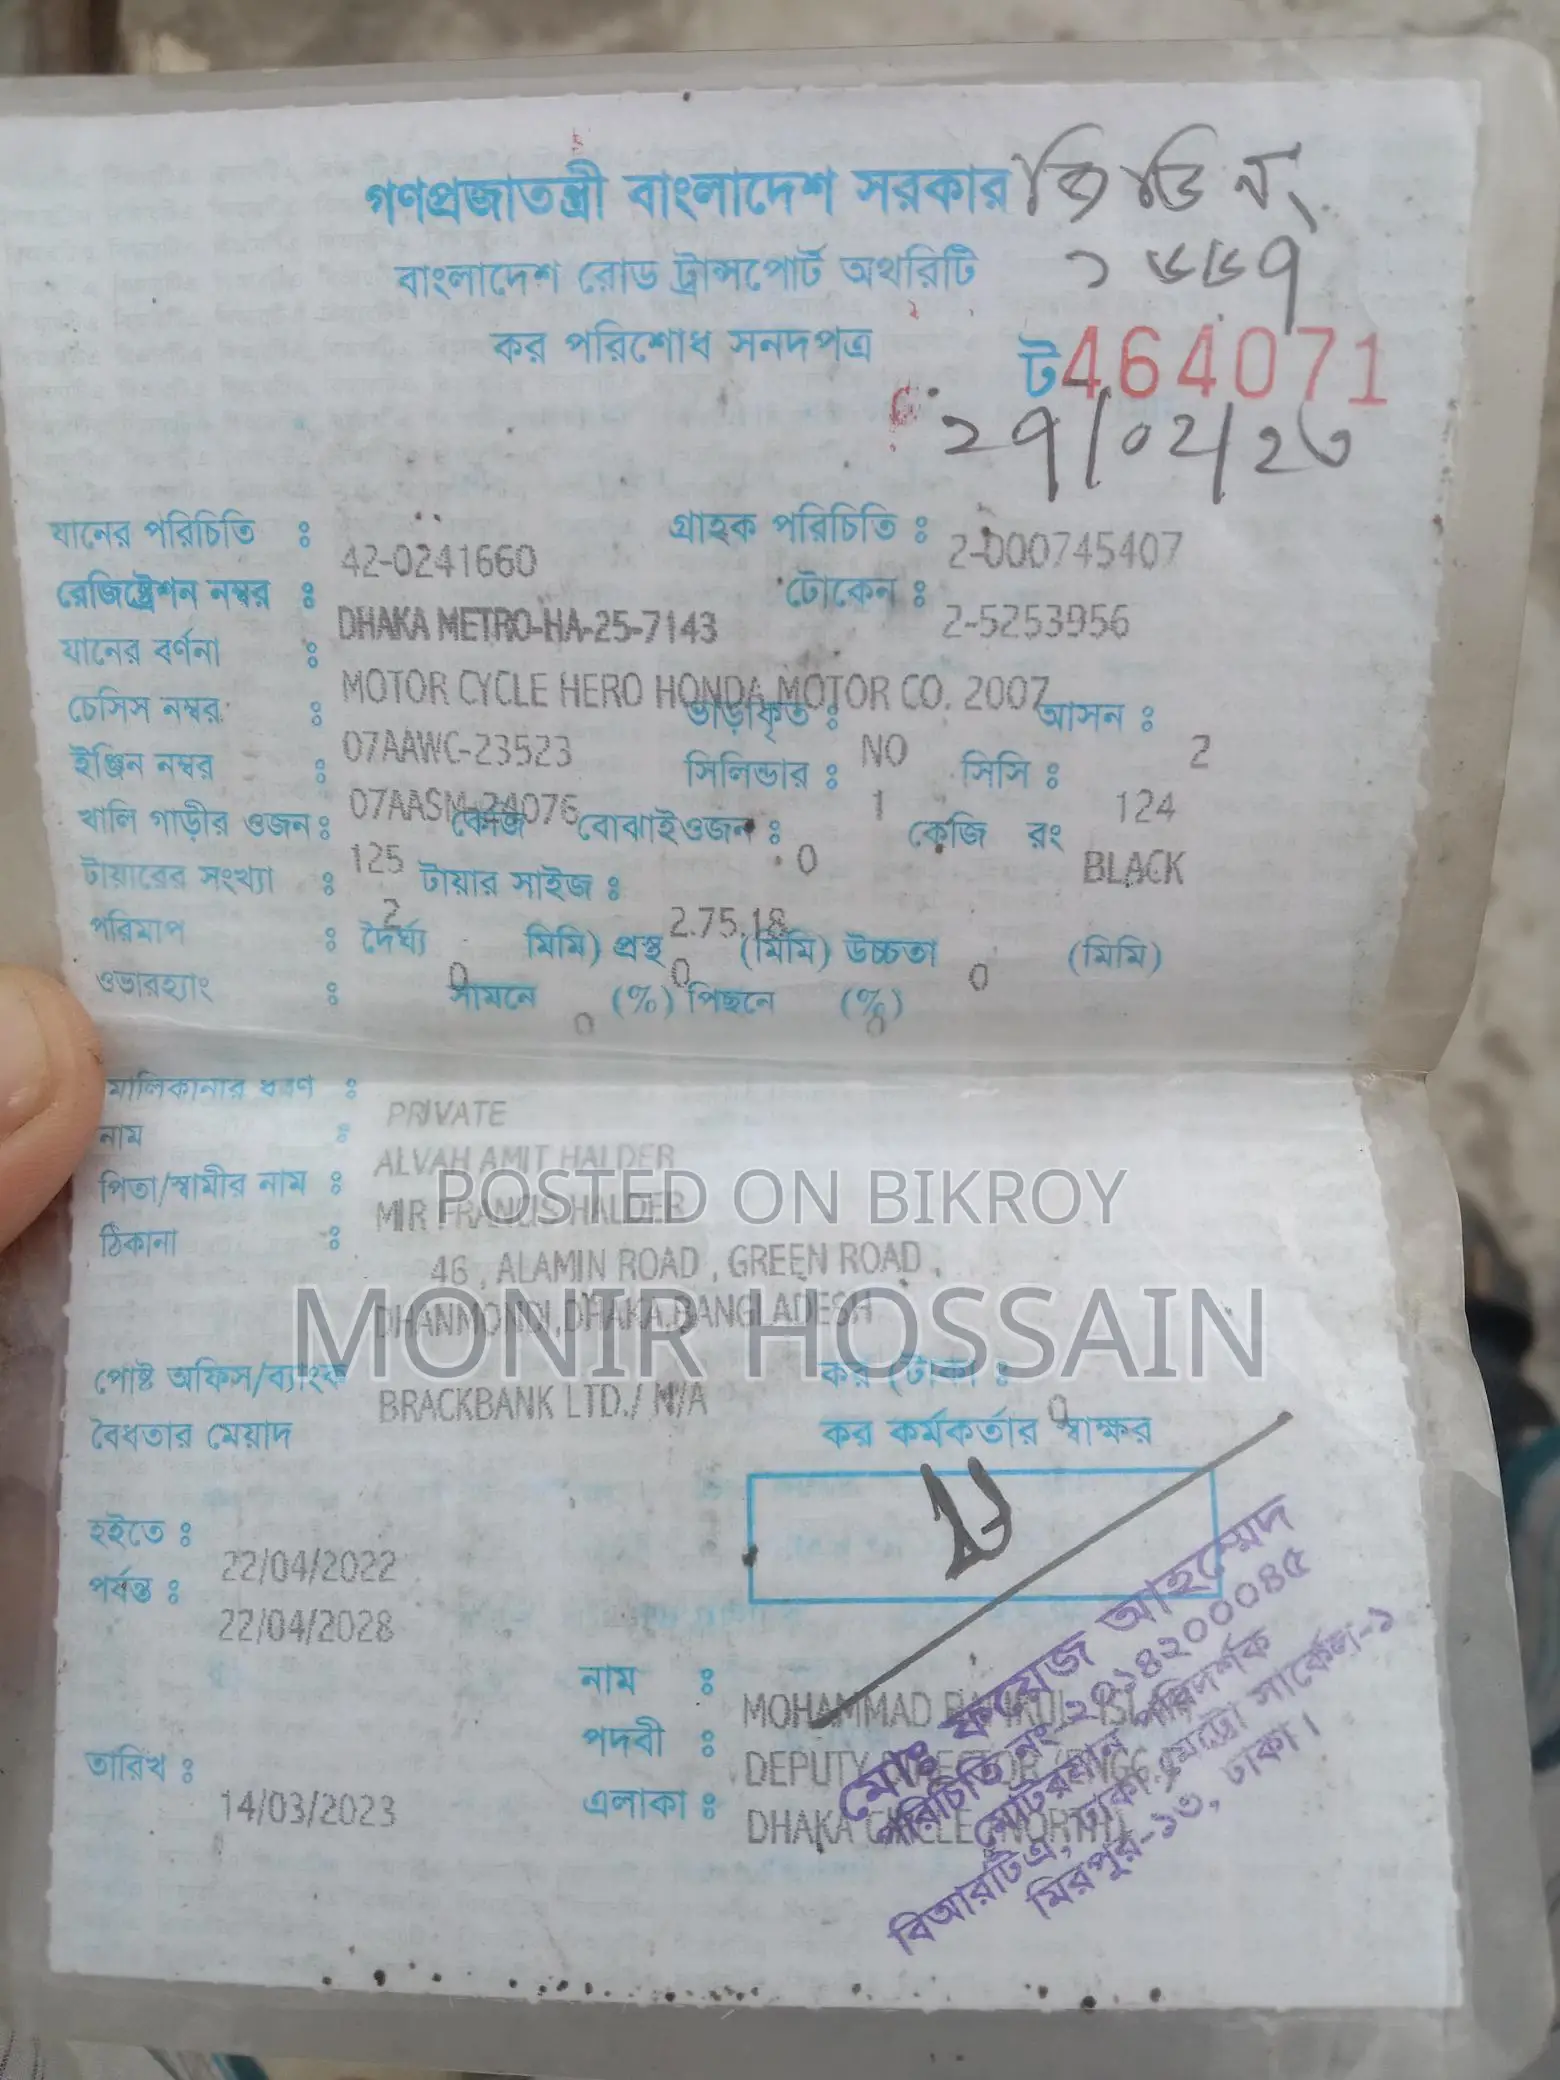 গণপ্রজাতন্ত্রী বাংলাদেশ সরকার জিডি নং
বাংলাদেশ রোড ট্রান্সপোর্ট অথরিটি ১৬৬৭
কর পরিশোধ সনদপত্র ট464071
২৭/০২/২৩
যানের পরিচিতি : 42-0241660 গ্রাহক পরিচিতি : 2-000745407
রেজিষ্ট্রেশন নম্বর : DHAKA METRO-HA-25-7143 টোকেন : 2-5253956
যানের বর্ণনা : MOTOR CYCLE HERO HONDA MOTOR CO. 2007
চেসিস নম্বর : 07AAWC-23523 ভাড়াকৃত : NO আসন : 2
ইঞ্জিন নম্বর : 07AASM-24076 সিলিন্ডার : 1 সিসি : 124
খালি গাড়ীর ওজন : 125 কেজি বোঝাইওজন : 0 কেজি রং BLACK
টায়ারের সংখ্যা : 2 টায়ার সাইজ : 2.75.18
পরিমাপ : দৈর্ঘ্য 0 মিমি) প্রস্থ 0 (মিমি) উচ্চতা 0 (মিমি)
ওভারহ্যাং : সামনে 0 (%) পিছনে 0 (%)
মালিকানার ধরণ : PRIVATE
নাম : ALVAH AMIT HALDER
পিতা/স্বামীর নাম : MIR FRANCIS HALDER
POSTED ON BIKROY
ঠিকানা : 46 , ALAMIN ROAD , GREEN ROAD ,
DHANMONDI,DHAKA,BANGLADESH
MONIR HOSSAIN
পোষ্ট অফিস/ব্যাংক BRACKBANK LTD./ N/A কর (টাকা : 0
বৈধতার মেয়াদ কর কর্মকর্তার স্বাক্ষর
হইতে : 22/04/2022
পর্যন্ত : 22/04/2028
নাম : MOHAMMAD
পদবী : DEPUTY DIRECTOR (ENGG.)
তারিখ : 14/03/2023 এলাকা : DHAKA CIRCLE (NORTH)
মোঃ ফয়েজ আহম্মেদ
পরিচিতি নং-২০১৪২০০০৪৫
মোটরযান পরিদর্শক
বিআরটিএ, ঢাকা মেট্রো সার্কেল-১
মিরপুর-১৩, ঢাকা।